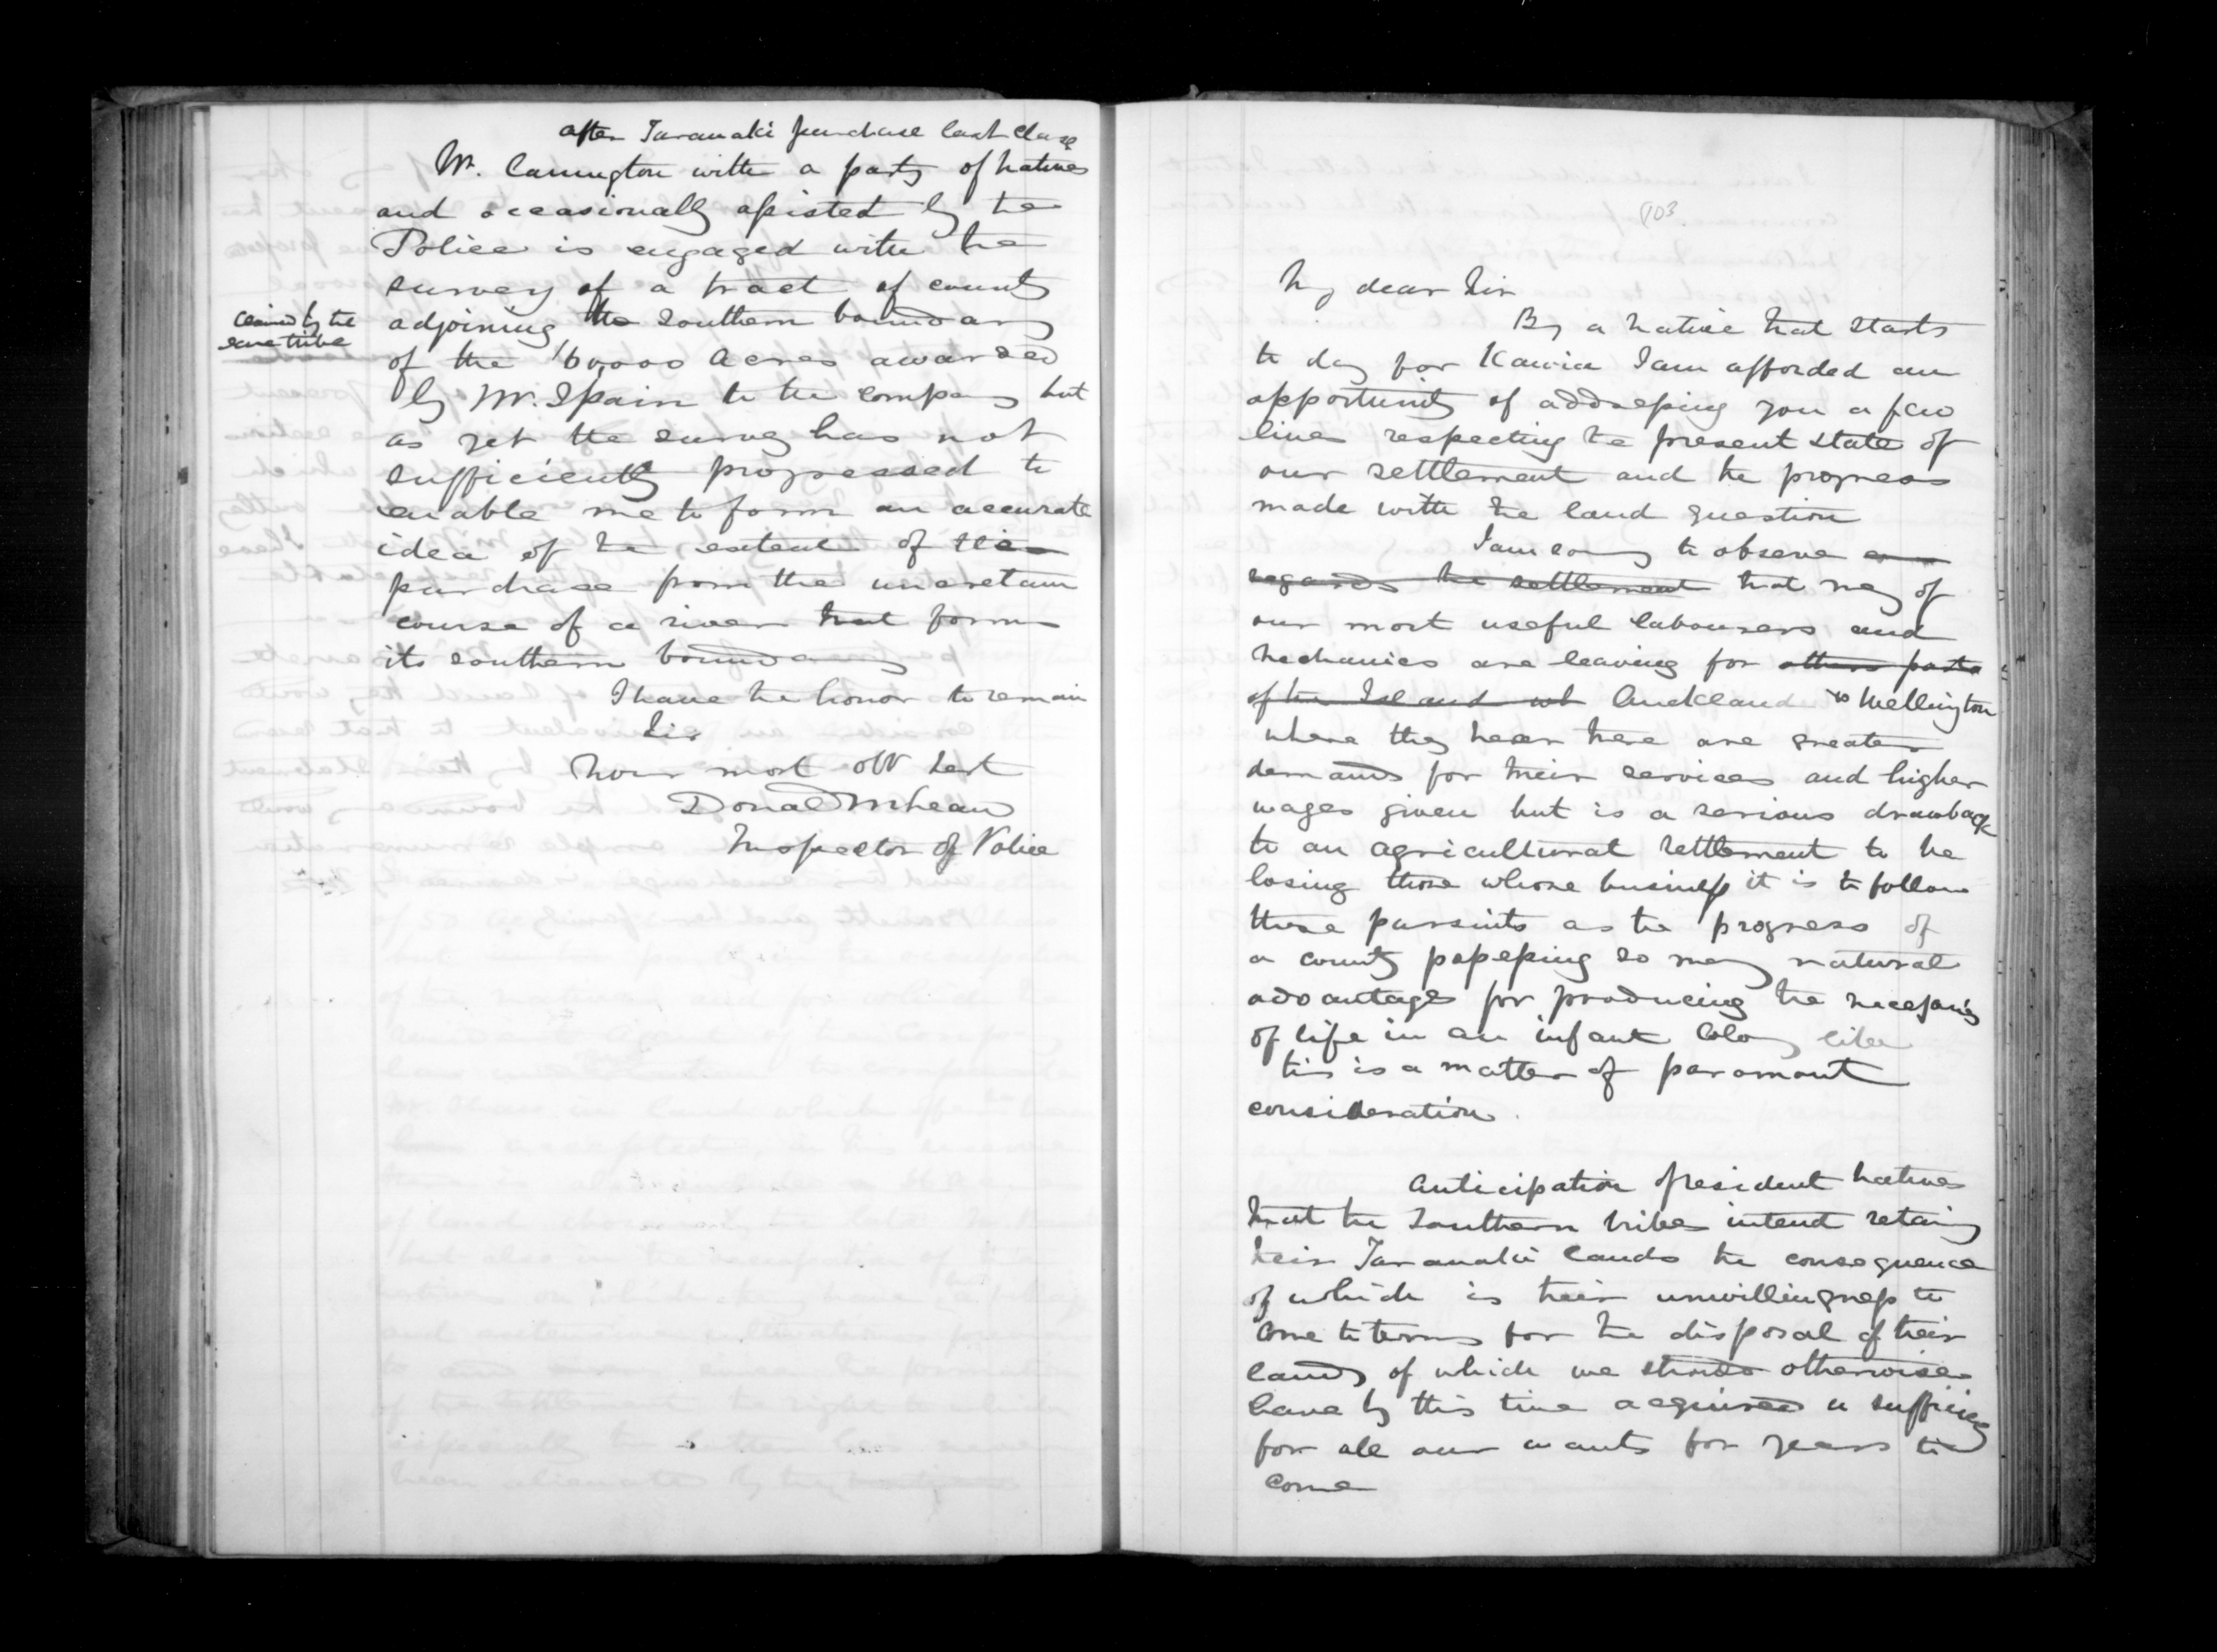 after Taranaki purchase last clause
Mr. Carrington with a party of natives
and occasionally assisted by the
Police is engaged with the
survey of a tract of county
claimed by the
same tribe
adjoining the southern boundary
of the 60,000 acres awarded
by Mr. Spain to the company but
as yet the survey has not
sufficiently progressed to
enable me to form an accurate
idea of the extent of the
purchase from the uncertain
course of a river that forms
its southern boundary
I have the honor to remain
Sir
Your most obt sert
Donald McLean
Inspector of Police
103
My dear Sir
By a native that starts
to day for Kawia I am afforded an
opportunity of addressing you a few
lines respecting the present state of
our settlement and the progress
made with the land question
I am sorry to observe as
regards the settlement that many of
our most useful labourers and
mechanics are leaving for other parts
of the Island wh Auckland & Wellington
where they hear there are greater
demands for their services and higher
wages given but is a serious drawback
to an agricultural settlement to be
losing those whose business it is to follow
these pursuits as the progress of
a county possessing so many natural
advantages for producing the necessaries
of life in an infant Colony like
this is a matter of paramount
consideration.
Anticipation of resident natives
that the Southern tribes intend retaing
their Taranaki lands the consequence
of which is their unwillingness to
come to terms for the disposal of their
lands of which we should otherwise
have by this time acquired a sufficiency
for all our wants for years to
come